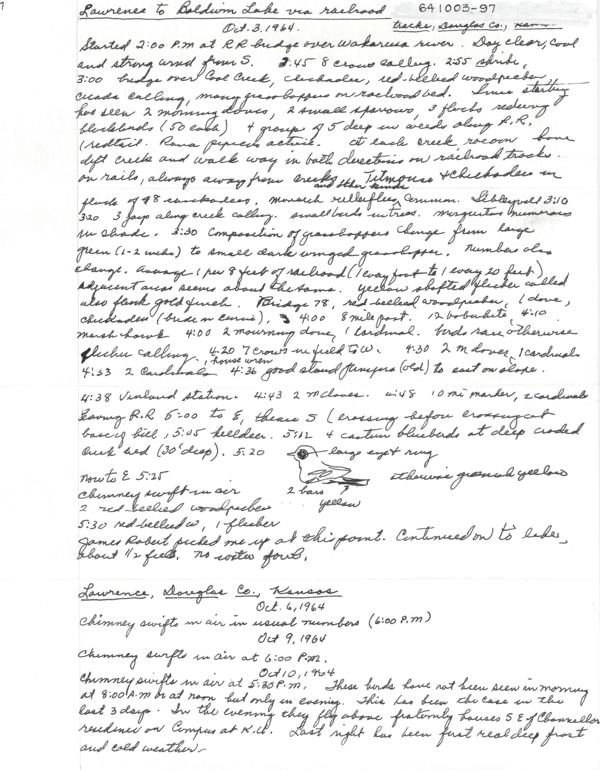 Lawrence to Baldwin Lake via railroad
641003-97
tracks, Douglas Co., Kansas
Oct. 3, 1964.
Started 2:00 P.M at R.R bridge over Wakarusa river. Day clear, cool
and strong wind from S. 2:45 8 crows calling. 2:55 shrike,
3:00 bridge over Coal Creek, chickadee, red-bellied woodpecker,
cicada calling, many grasshoppers on railroad bed. Since starting
has seen 2 mourning doves, 2 small sparrows, 3 flocks redwing
blackbirds (50 each) 4 groups of 5 deep in weeds along R.R.
1 redtail. Rana pipiens active. At each creek, racoon have
left creek and walk way in both directions on railroad tracks.
on rails, always away from creeks
and other
Titmouse & chickadees in
flocks of 8 chickadees. Monarch butterflies common. 3:10
3:20 3 jays along creek calling. small birds in trees. mosquitos numerous
in shade. 3:30 Composition of grasshoppers change from large
green (1-2 inches) to small dark winged grasshopper. Numbers also
change. Average 1 per 8 feet of railroad (1 every foot to 1 every 20 feet)
adjacent areas seems about the same. Yellow shafted flicker called
also gold finch. Bridge 78, red bellied woodpecker, 1 dove,
chickadees (birds in ). 4:00 8 mile post. 12 bobwhite, 4:10
marsh hawk 4:00 2 mourning dove, 1 cardinal. birds rare otherwise
flicker calling. 4:20 7 crows in field to W. 4:30 2 m doves, 1 cardinals
, house wren
4:33 2 Cardinals 4:36 good stand (old) to east on slope.
4:38 Vinland station. 4:43 2 M doves. 4:48 10 mi marker, 2 cardinals
Leaving R.R 5:00 to E, thence S (crossing before crossing at
base of hill, 5:05 killdeer. 5:12 4 eastern bluebirds at deep eroded
creek bed (30' deep). 5:20
large eye & ring
otherwise greenish yellow
2 bars
yellow
now to E 5:25
Chimney swift in air
2 red-bellied woodpecker
5:30 red-bellied w, 1 flicker
James Robert picked me up at this point. Continued on to lake,
about 1/2 full. No water fowl.
Lawrence, Douglas Co., Kansas
Oct. 6, 1964
Chimney swifts in air in usual numbers (6:00 P.M)
Oct 9, 1964
Chimney swifts in air at 6:00 P.M.
Oct 10, 1964
Chimney swifts in air at 5:30 P.M. These birds have not been seen in morning
at 8:00 A.M or at noon but only in evening. This has been the case in the
last 3 days. In the evening they fly above fraternity houses S E of Chancellor
residence on Campus at K.U. Last night has been first real deep frost
and cold weather.